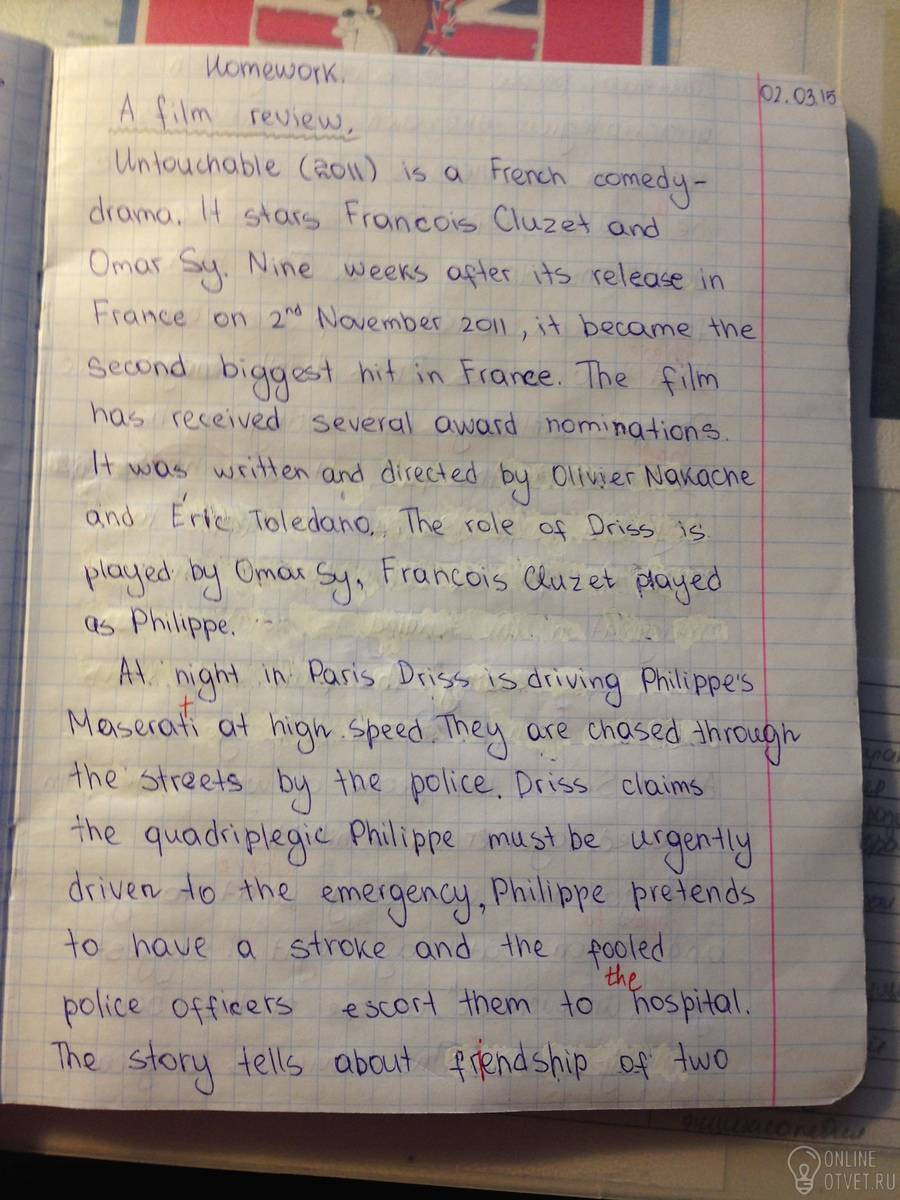 Homework.
02.03.15
A film review.
Untouchable (2011) is a French comedy-
drama. It stars Francois Cluzet and
Omar Sy. Nine weeks after its release in
France on 2nd November 2011, it became the
second biggest hit in France. The film
has received several award nominations.
It was written and directed by Olivier Nakache
and Éric Toledano. The role of Driss is
played by Omar Sy, Francois Cluzet played
as Philippe.
At night in Paris Driss is driving Philippe's
Maserati at high speed. They are chased through
the streets by the police. Driss claims
the quadriplegic Philippe must be urgently
driven to the emergency, Philippe pretends
to have a stroke and the fooled
police officers escort them to the hospital.
The story tells about friendship of two
ONLINE
OTVET.RU